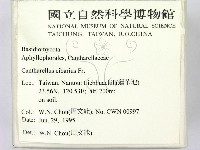 國立自然科學博物館
NATIONAL MUSEUM OF NATURAL SCIENCE
TAICHUNG, TAIWAN, R.O.CHINA
Basidiomycota
Aphyllophorales, Cantharellaceae
Cantharellus cibarius Fr.
Loc.: Taiwan, Nantou:
23.56N, 120.53E; Alt. 700m
on soil.
Col.: W.N. Chou(周文能); No. CWN 00997
Date: Jun. 29, 1995
Det.: W.N. Chou(周文能)